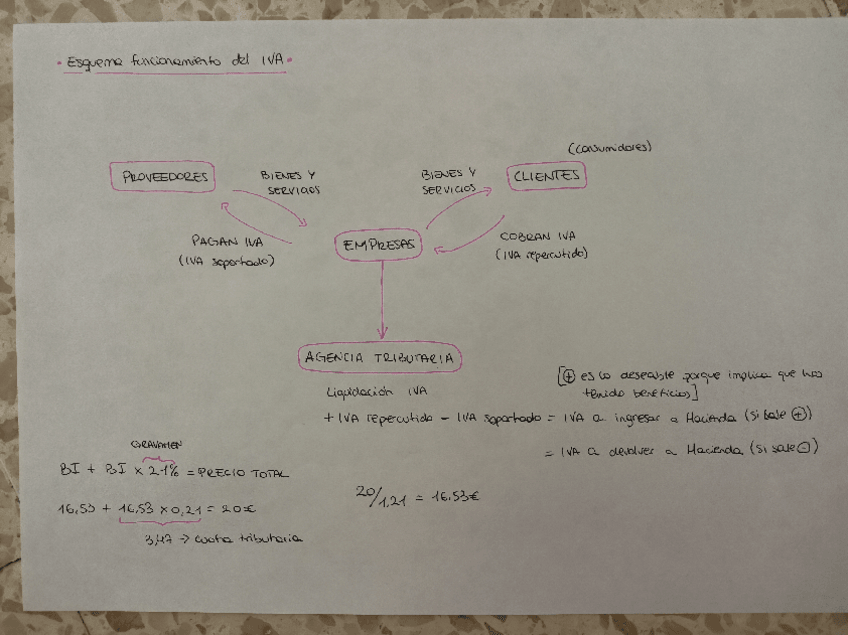 · Esquema funcionamiento del IVA ·
(consumidores)
PROVEEDORES
BIENES Y
SERVICIOS
BIENES Y
SERVICIOS
CLIENTES
PAGAN IVA
(IVA soportado)
EMPRESAS
COBRAN IVA
(IVA repercutido)
AGENCIA TRIBUTARIA
Liquidación IVA
[⊕ es lo deseable porque implica que has
tenido beneficios]
+ IVA repercutido - IVA soportado = IVA a ingresar a Hacienda (si sale ⊕)
= IVA a devolver a Hacienda (si sale ⊖)
GRAVAMEN
BI + BI x 21% = PRECIO TOTAL
16,53 + 16,53 x 0,21 = 20€
3,47 → cuota tributaria
20/1,21 = 16.53€